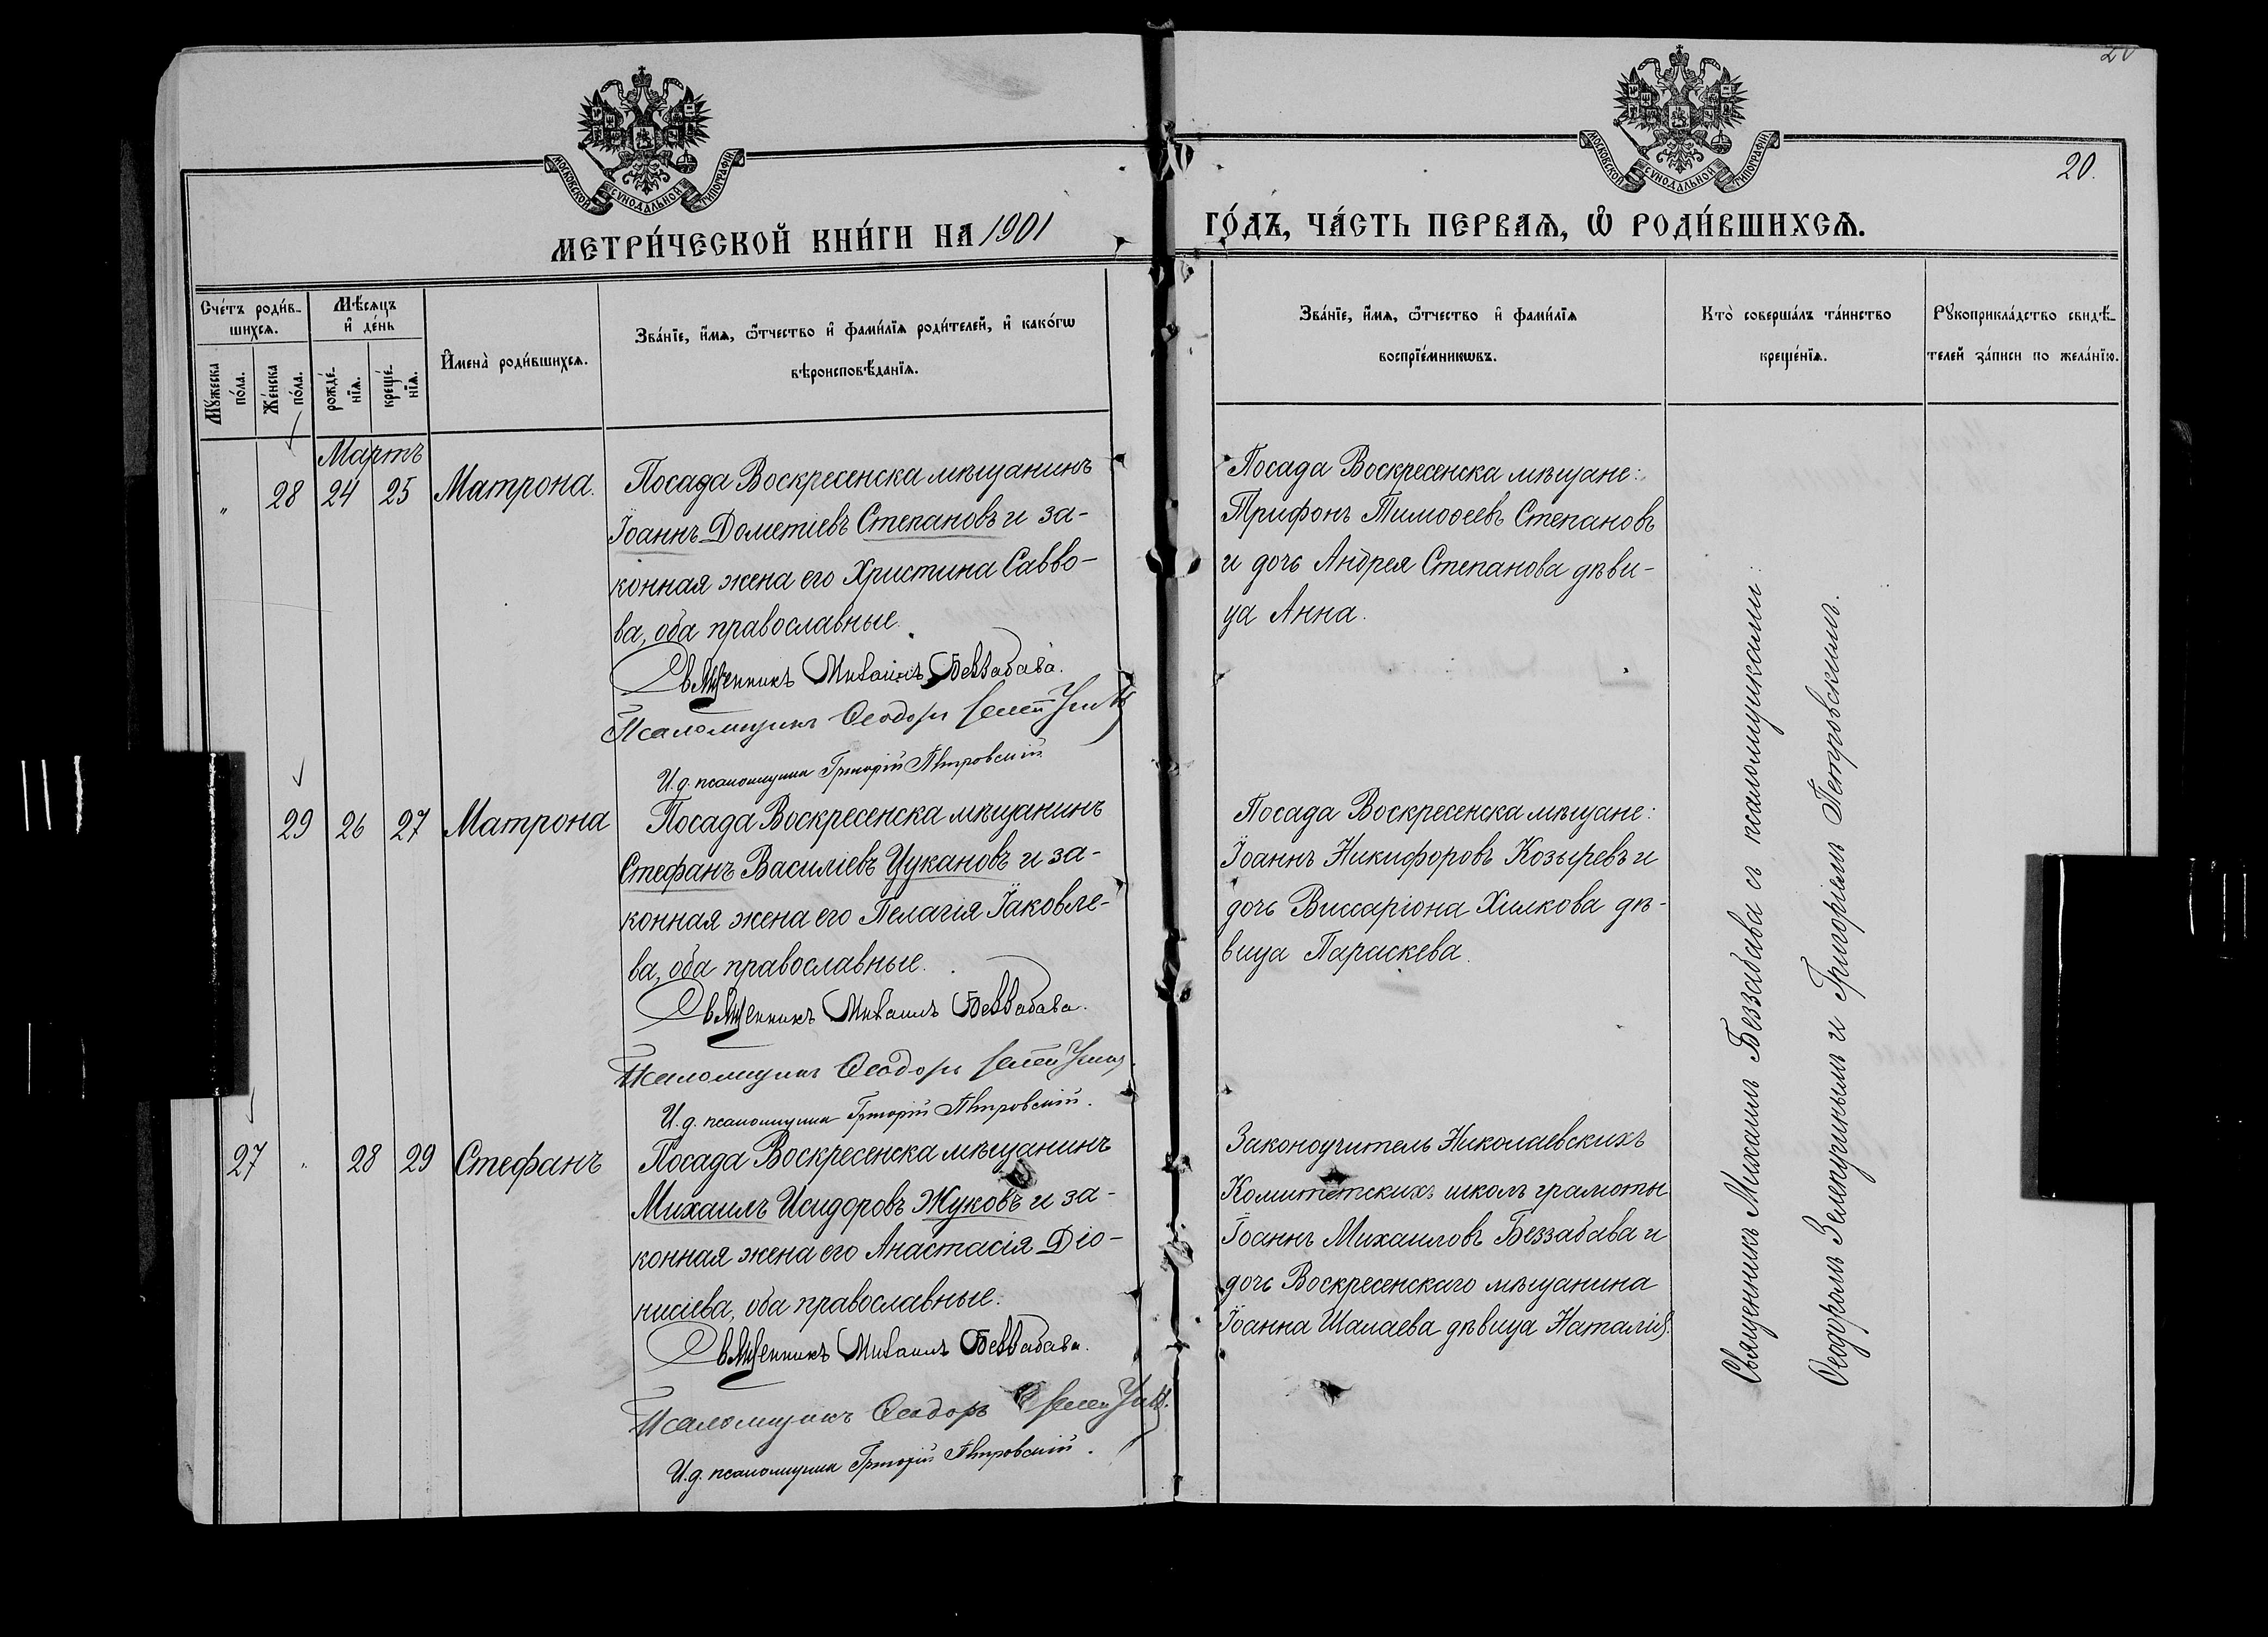 20
МОСКОВСКОЙ СѴНОДАЛЬНОЙ ТИПОГРАФІИ
МОСКОВСКОЙ СѴНОДАЛЬНОЙ ТИПОГРАФІИ
20.
МЕТРИ́ЧЕСКОЙ КНИ́ГИ НА 1901 ГО́ДЪ, ЧА́СТЬ ПЕРВАѦ, Ѽ РОДИ́ВШИХСѦ.
Сче́тъ роди́в-
шихсѧ.
Мꙋ́жеска
по́ла.
Же́нска
по́ла.
Мѣ́сѧцъ
и҆ де́нь
рожде́-
нїѧ.
креще́-
нїѧ.
И҆мена̀ роди́вшихсѧ.
Зва́нїе, и҆́мѧ, ѻ҆́тчество и҆ фами́лїѧ роди́телей, и҆ како́гѡ
вѣроисповѣ́данїѧ.
Зва́нїе, и҆́мѧ, ѻ҆́тчество и҆ фами́лїѧ
воспрїе́мникѡвъ.
Кто̀ соверша́лъ та́инство
креще́нїѧ.
Рꙋкоприкла́дство свидѣ́-
телей за́писи по жела́нїю.
Мартъ
" 28 24 25 Матрона.
Посада Воскресенска мѣщанинъ
Іоаннъ Дометіевъ Степановъ и за-
конная жена его Христина Савво-
ва, оба православные.
Священникъ Михаилъ Беззабава.
Псаломщикъ Ѳеодоръ
И.д. псаломщика Григорій Петровскій.
Посада Воскресенска мѣщане:
Трифонъ Тимоѳеевъ Степановъ
и дочь Андрея Степанова дѣви-
ца Анна.
29 26 27 Матрона
Посада Воскресенска мѣщанинъ
Стефанъ Василіевъ Цукановъ и за-
конная жена его Пелагія Іаковле-
ва, оба православные.
Священникъ Михаилъ Беззабава.
Псаломщикъ Ѳеодоръ
И.д. псаломщика Григорій Петровскій.
Посада Воскресенска мѣщане:
Іоаннъ Никифоровъ Козыревъ и
дочь Виссаріона Хилкова дѣ-
вица Параскева.
27 " 28 29 Стефанъ
Посада Воскресенска мѣщанинъ
Михаилъ Исидоровъ Жуковъ и за-
конная жена его Анастасія Діо-
нисіева, оба православные.
Священникъ Михаилъ Беззабава.
Псаломщикъ Ѳеодоръ
И.д. псаломщика Григорій Петровскій.
Законоучитель Николаевскихъ
Комитетскихъ школъ грамоты
Іоаннъ Михаиловъ Беззабава и
дочь Воскресенскаго мѣщанина
Іоанна Шалаева дѣвица Наталія.
Священникъ Михаилъ Беззабава съ псаломщиками:
Ѳеодоромъ и Григоріемъ Петровскимъ.